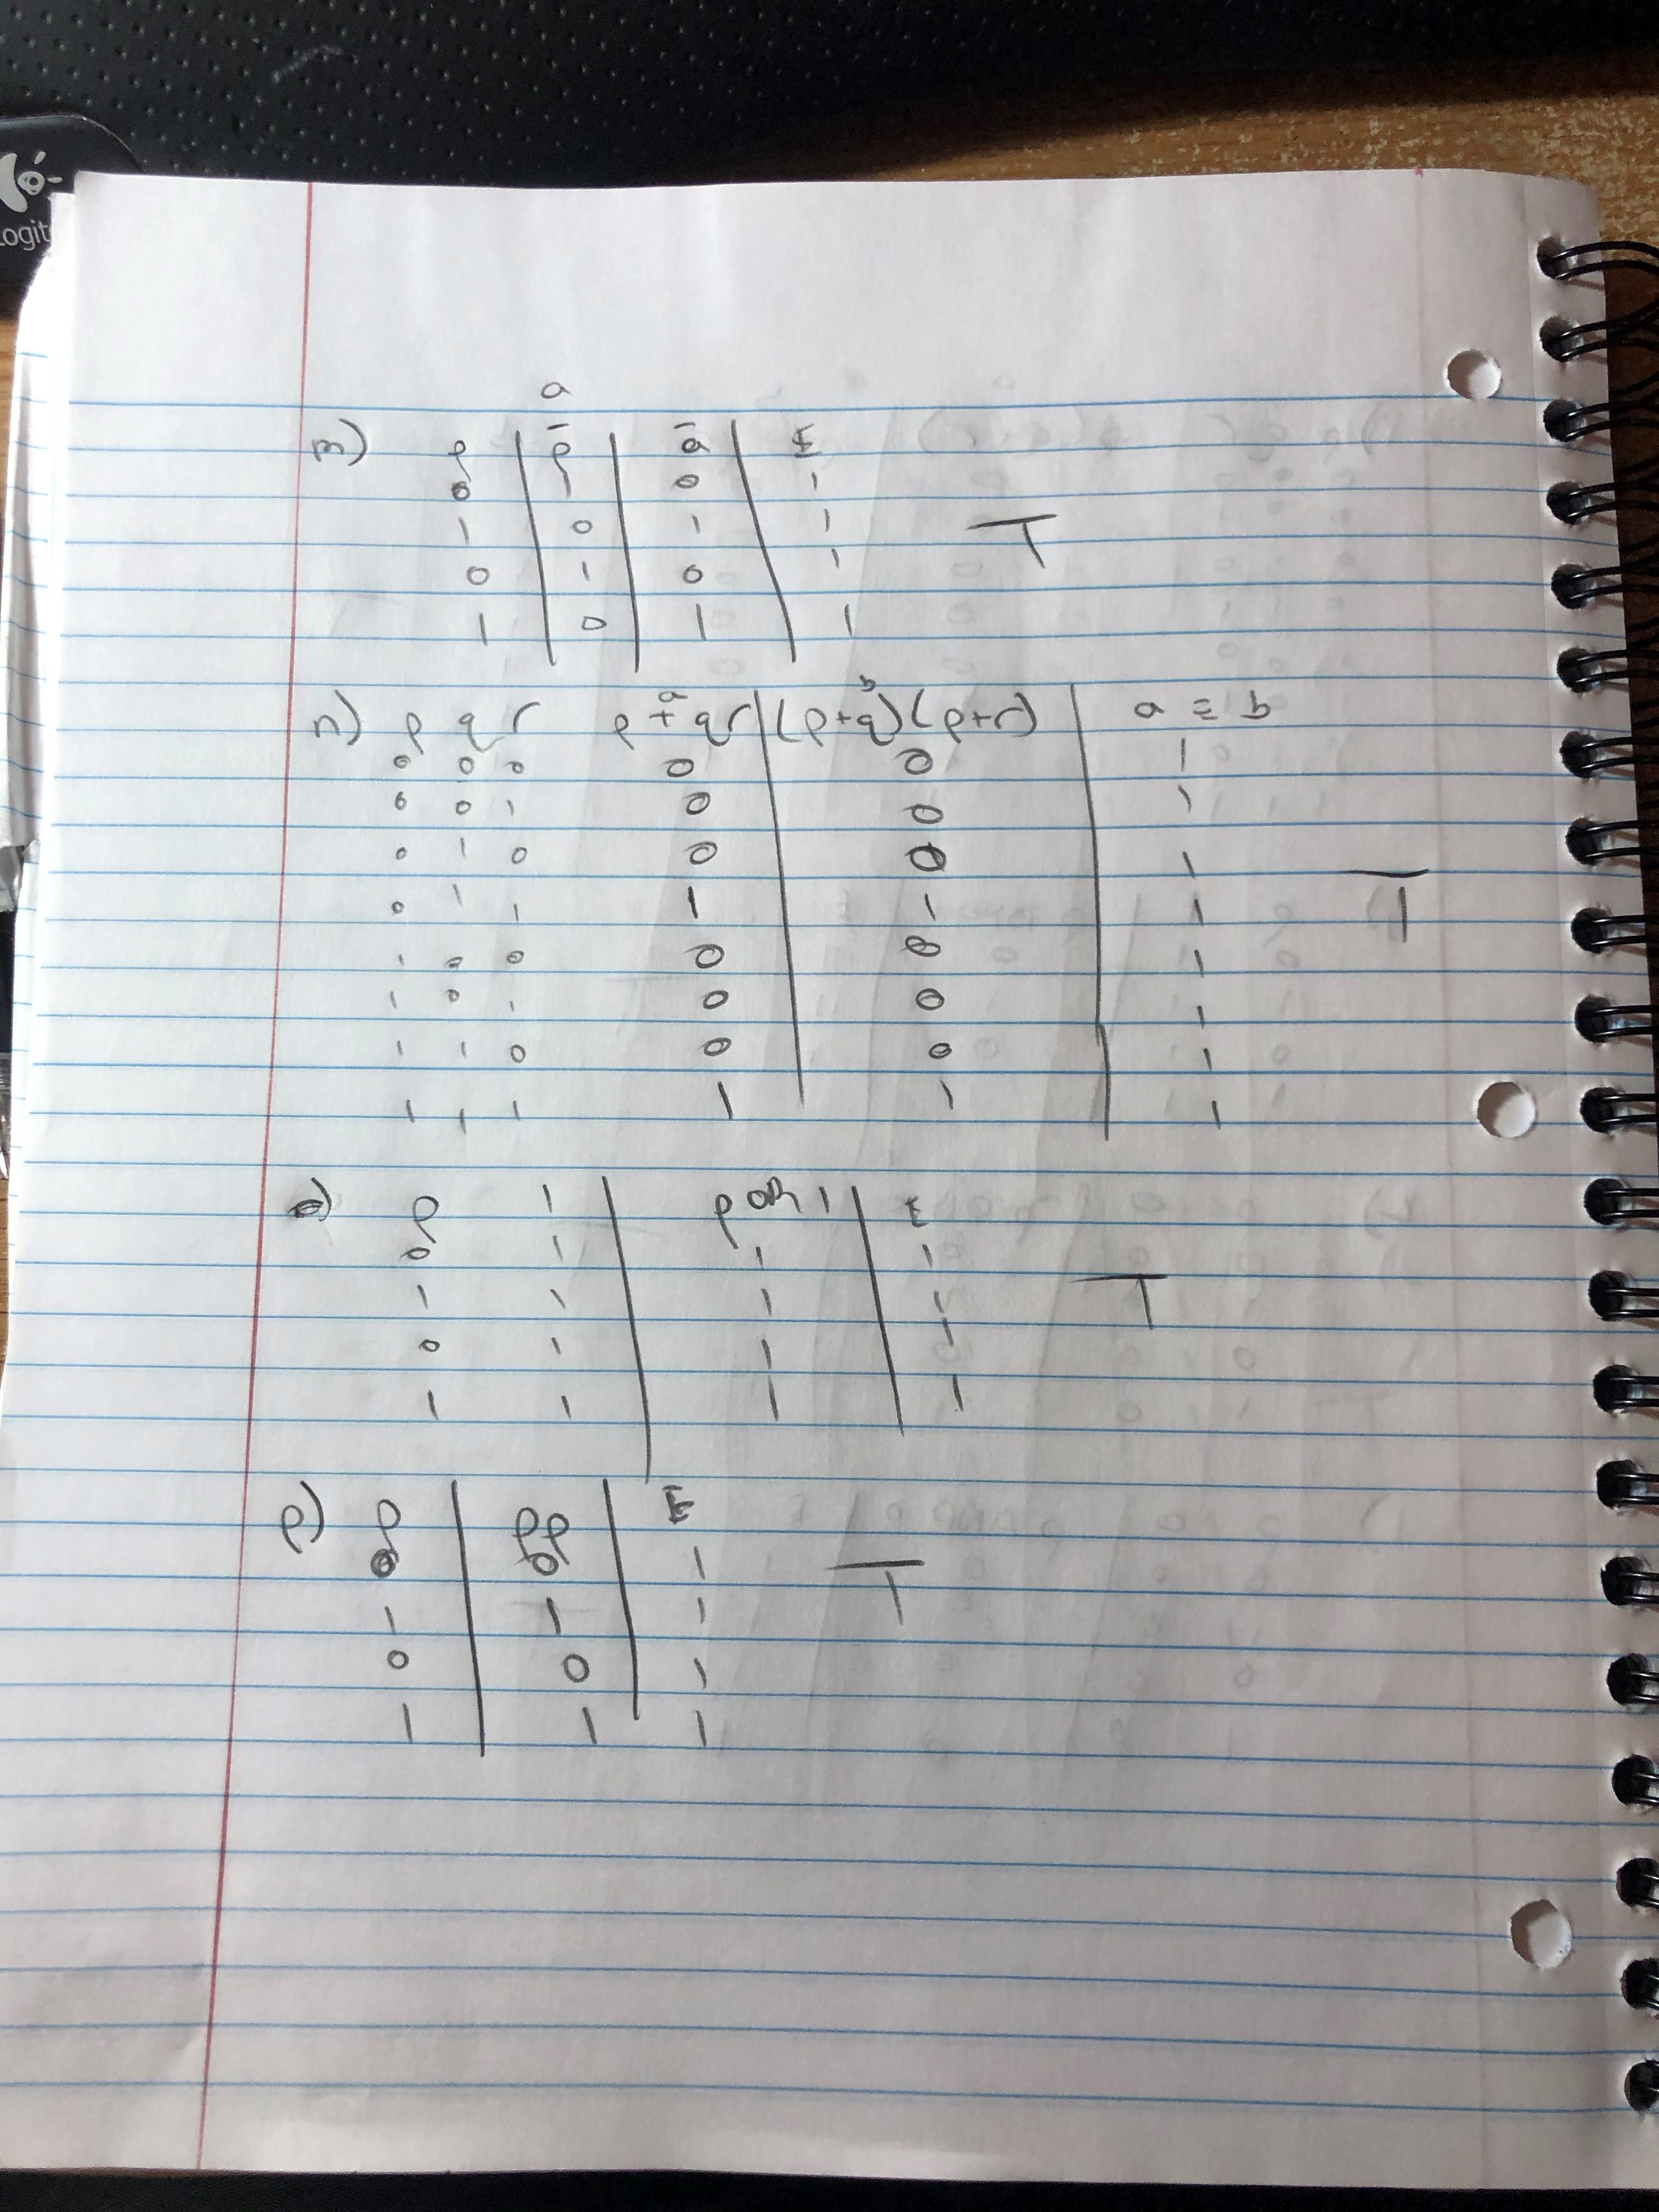 Logit
a
m) p p̄ ā ≡
0 1 0 1
1 0 1 1 T
0 1 0 1
1 0 1 1
a b
n) p q r p + qr (p+q)(p+r) a ≡ b
0 0 0 0 0 1
0 0 1 0 0 1
0 1 0 0 0 1
0 1 1 1 1 1 T
1 0 0 0 0 1
1 0 1 0 0 1
1 1 0 0 0 1
1 1 1 1 1 1
o) p 1 p OR 1 ≡
0 1 1 1
1 1 1 1 T
0 1 1 1
1 1 1 1
p) p pp ≡
0 0 1 T
1 1 1
0 0 1
1 1 1